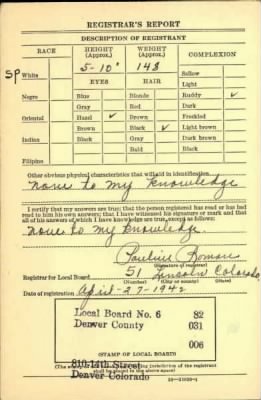 REGISTRAR'S REPORT
DESCRIPTION OF REGISTRANT
RACE HEIGHT (Approx.) WEIGHT (Approx.) COMPLEXION
5-10" 148
SP White Sallow
EYES HAIR Light
Negro Blue Blonde Ruddy ✓
Gray Red Dark
Oriental Hazel ✓ Brown Freckled
Brown Black ✓ Light brown
Indian Black Gray Dark brown
Bald Black
Filipino
Other obvious physical characteristics that will aid in identification
None to my knowledge
I certify that my answers are true; that the person registered has read or has had
read to him his own answers; that I have witnessed his signature or mark and that
all of his answers of which I have knowledge are true, except as follows:
None to my knowledge
Pauline
(Signature of registrar)
Registrar for Local Board 51 Lincoln Colorado
Date of registration April-27-1942
Local Board No. 6 82
Denver County 031
006
810-14th Street
(STAMP OF LOCAL BOARD)
Denver Colorado
(The stamp of the jurisdiction of the registrant
shall be placed in the above space)